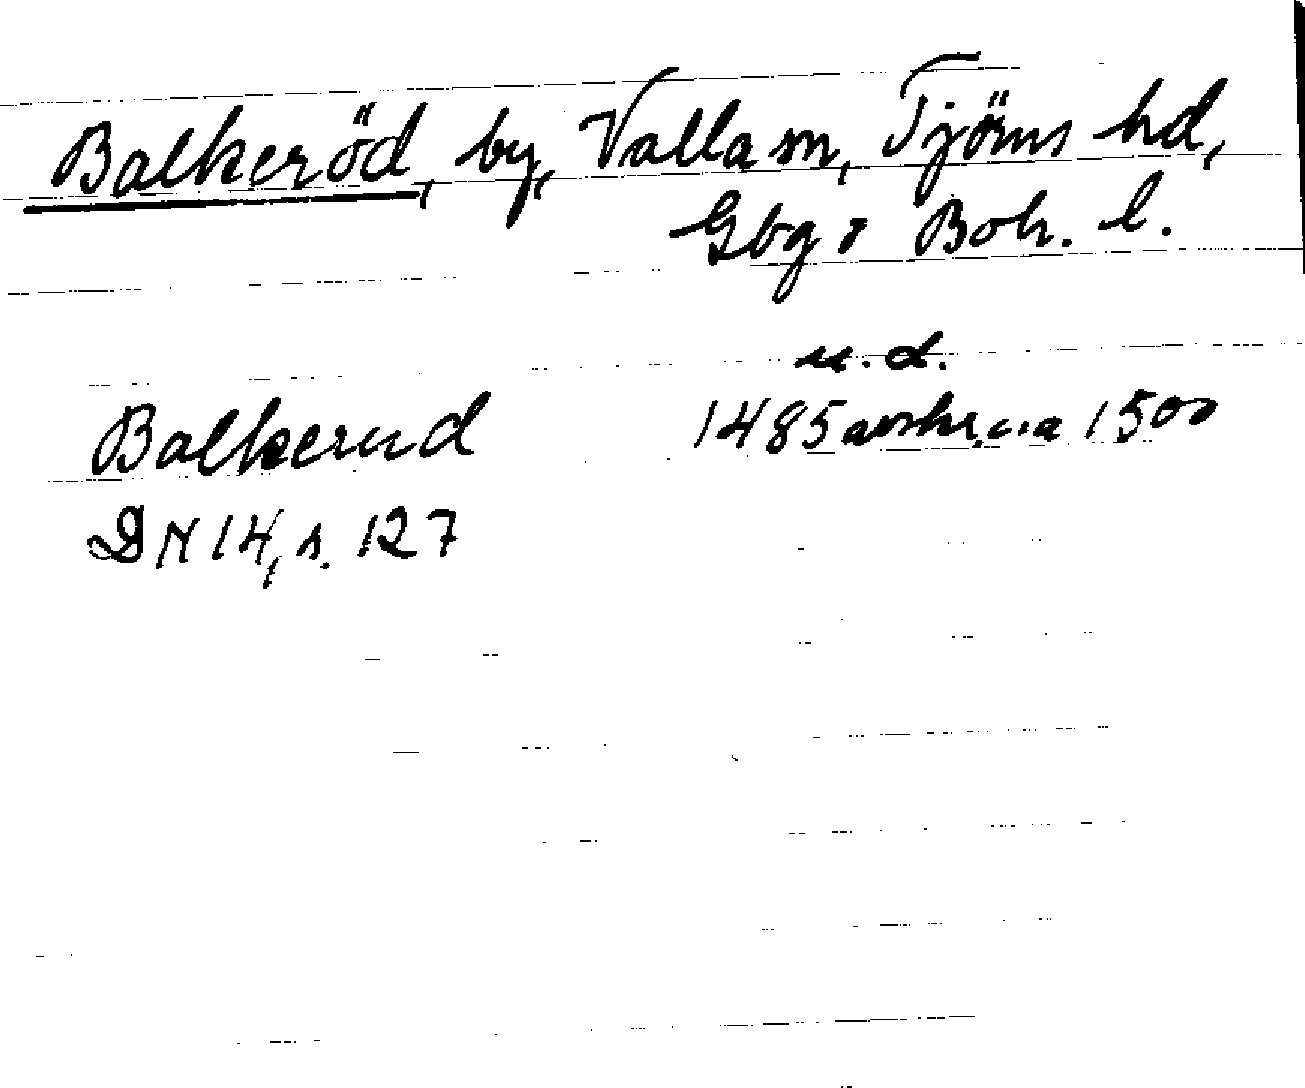 Balkeröd, by, Valla sn, Tjörns hd,
Gbg o Boh. l.
u. d.
Balkerud 1485 avskr. ca 1500
DN 14, s. 127